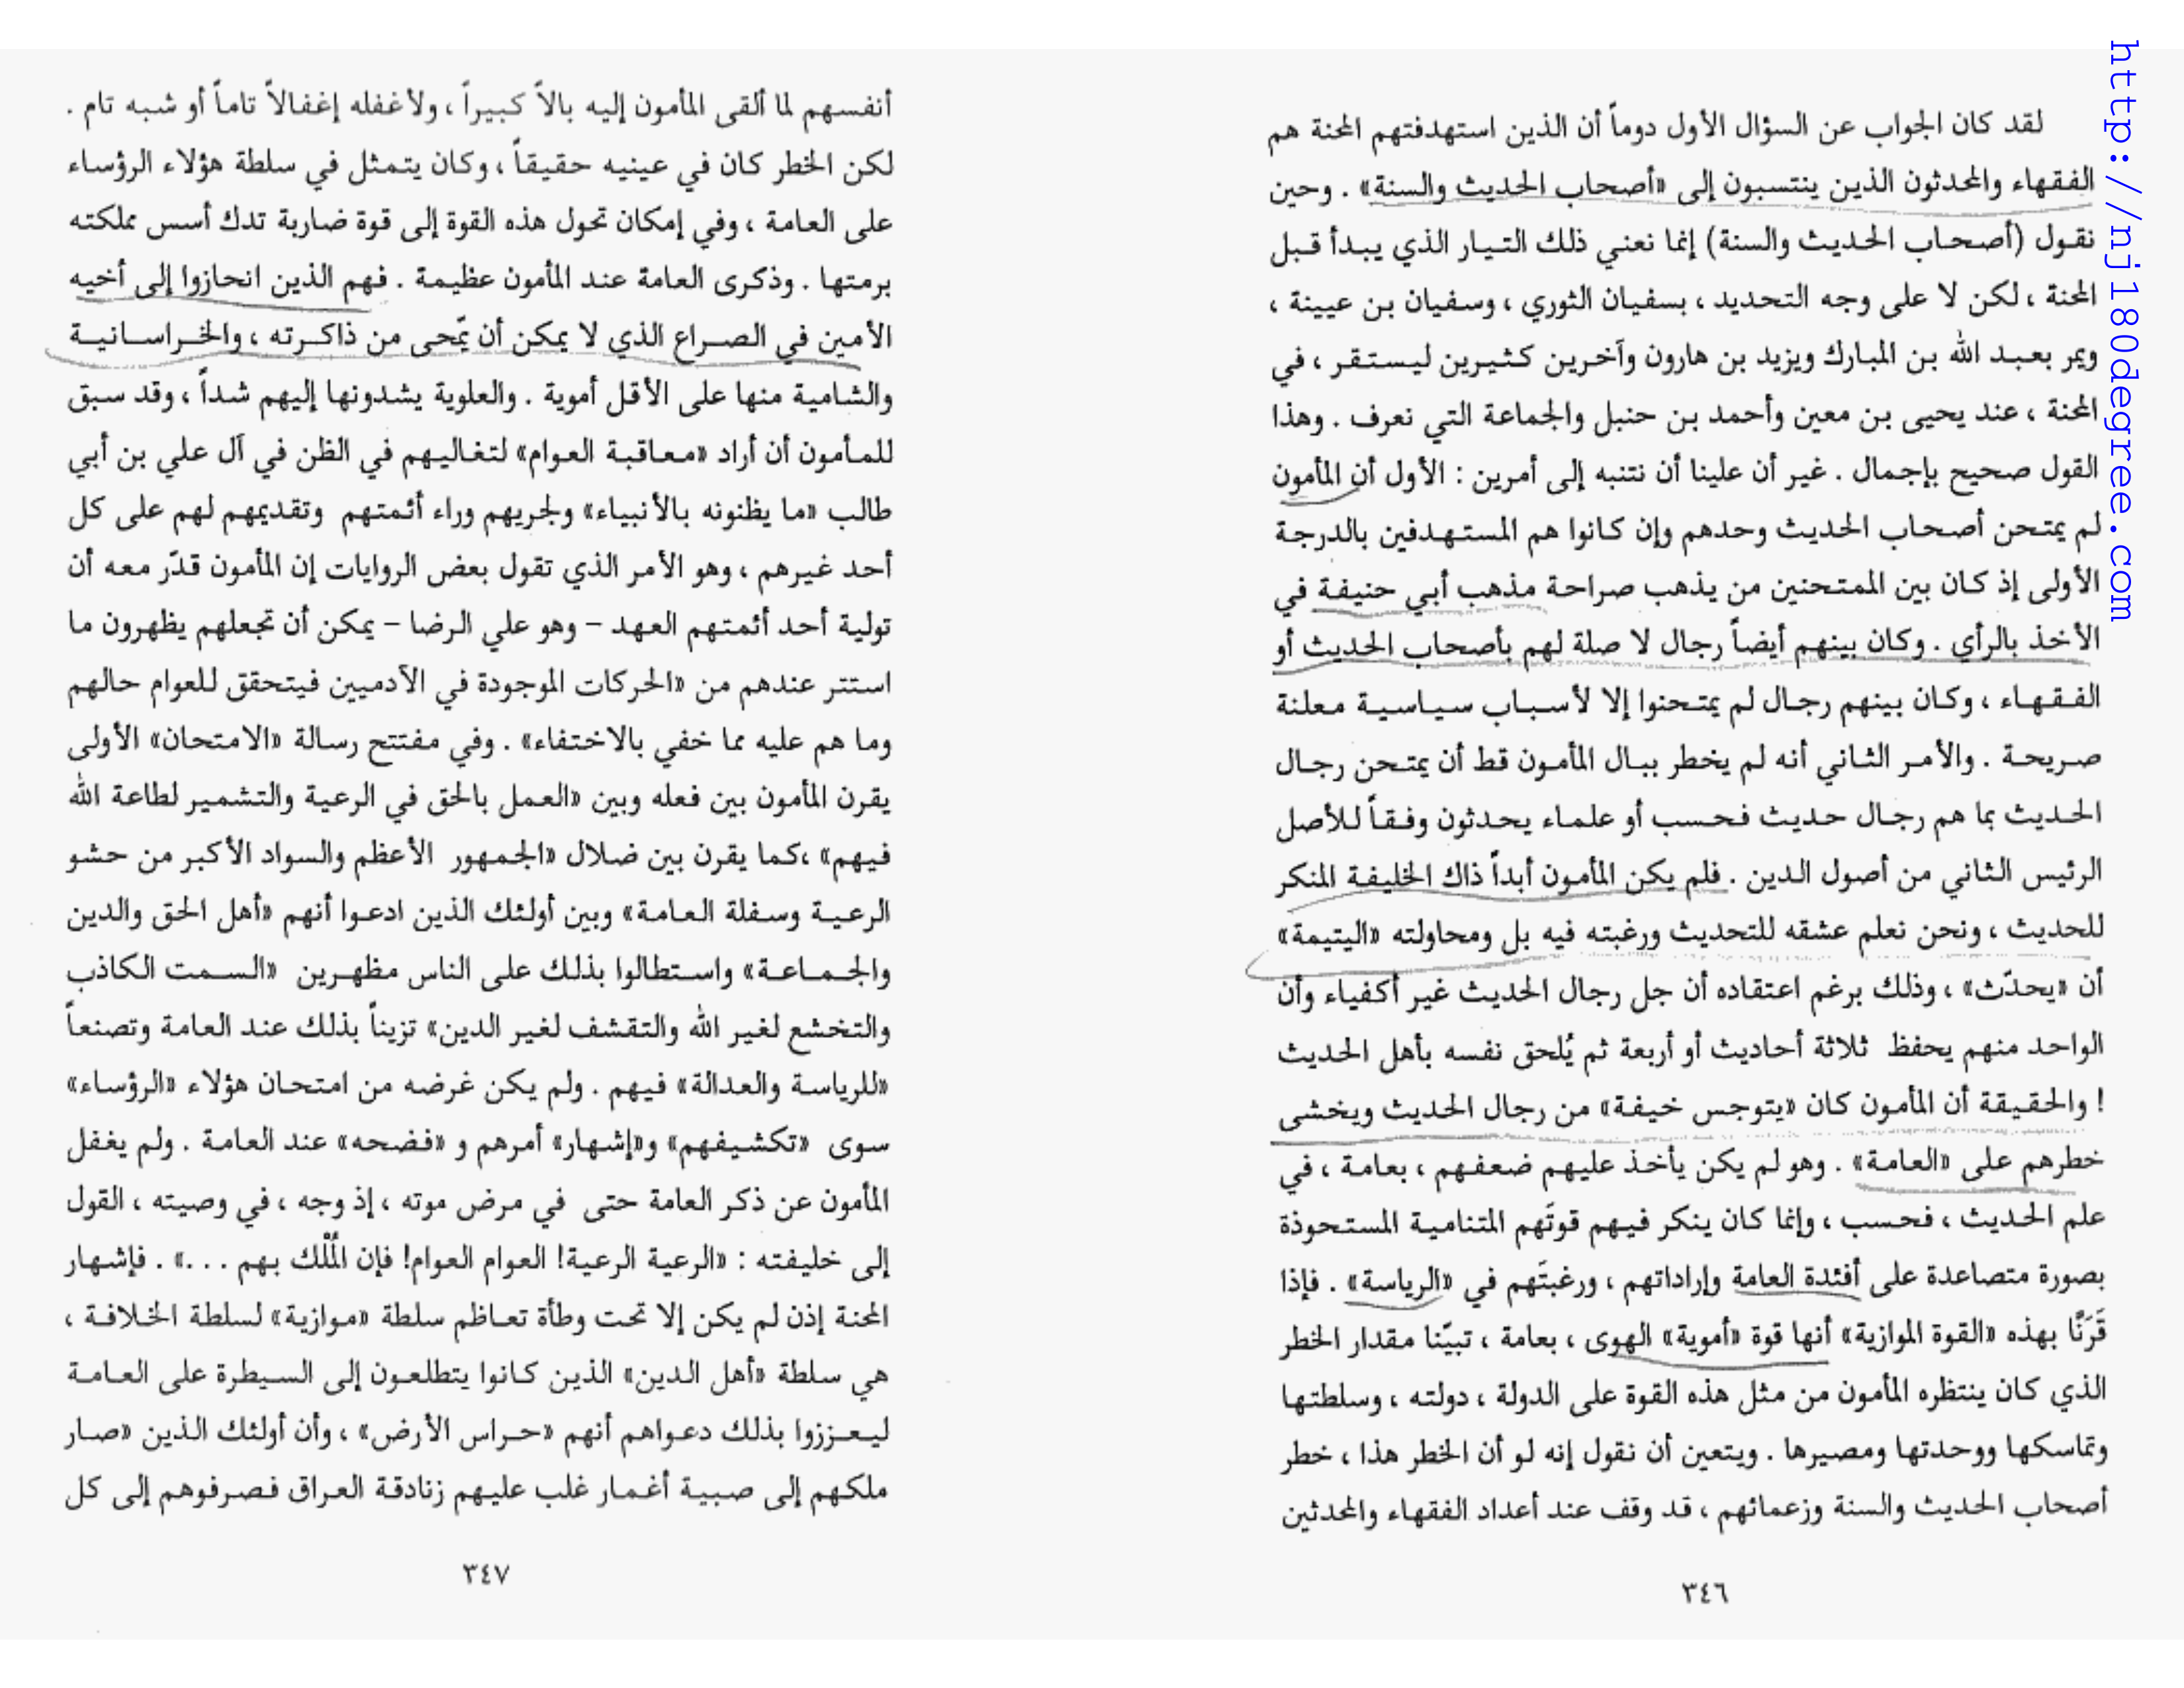 لقد كان الجواب عن السؤال الأول دوماً أن الذين استهدفتهم المحنة هم
الفقهاء والمحدثون الذين ينتسبون إلى «أصحاب الحديث والسنة» . وحين
نقول (أصحاب الحديث والسنة) إنما نعني ذلك التيار الذي يبدأ قبل
المحنة ، لكن لا على وجه التحديد ، بسفيان الثوري ، وسفيان بن عيينة ،
ويمر بعبد الله بن المبارك ويزيد بن هارون وآخرين كثيرين ليستقر ، في
المحنة ، عند يحيى بن معين وأحمد بن حنبل والجماعة التي نعرف . وهذا
القول صحيح بإجمال . غير أن علينا أن نتنبه إلى أمرين : الأول أن المأمون
لم يمتحن أصحاب الحديث وحدهم وإن كانوا هم المستهدفين بالدرجة
الأولى إذ كان بين الممتحنين من يذهب صراحة مذهب أبي حنيفة في
الأخذ بالرأي . وكان بينهم أيضاً رجال لا صلة لهم بأصحاب الحديث أو
الفقهاء ، وكان بينهم رجال لم يمتحنوا إلا لأسباب سياسية معلنة
صريحة . والأمر الثاني أنه لم يخطر ببال المأمون قط أن يمتحن رجال
الحديث بما هم رجال حديث فحسب أو علماء يحدثون وفقاً للأصل
الرئيس الثاني من أصول الدين . فلم يكن المأمون أبداً ذاك الخليفة المنكر
للحديث ، ونحن نعلم عشقه للتحديث ورغبته فيه بل ومحاولته «اليتيمة»
أن «يحدّث» ، وذلك برغم اعتقاده أن جل رجال الحديث غير أكفياء وأن
الواحد منهم يحفظ ثلاثة أحاديث أو أربعة ثم يُلحق نفسه بأهل الحديث
! والحقيقة أن المأمون كان «يتوجس خيفة» من رجال الحديث ويخشى
خطرهم على «العامة» . وهو لم يكن يأخذ عليهم ضعفهم ، بعامة ، في
علم الحديث ، فحسب ، وإنما كان ينكر فيهم قوتَهم المتنامية المستحوذة
بصورة متصاعدة على أفئدة العامة وإراداتهم ، ورغبتَهم في «الرياسة» . فإذا
قَرَنَّا بهذه «القوة الموازية» أنها قوة «أموية» الهوى ، بعامة ، تبيّنا مقدار الخطر
الذي كان ينتظره المأمون من مثل هذه القوة على الدولة ، دولته ، وسلطتها
وتماسكها ووحدتها ومصيرها . ويتعين أن نقول إنه لو أن الخطر هذا ، خطر
أصحاب الحديث والسنة وزعمائهم ، قد وقف عند أعداد الفقهاء والمحدثين
٣٤٦
أنفسهم لما ألقى المأمون إليه بالاً كبيراً ، ولأغفله إغفالاً تاماً أو شبه تام .
لكن الخطر كان في عينيه حقيقاً ، وكان يتمثل في سلطة هؤلاء الرؤساء
على العامة ، وفي إمكان تحول هذه القوة إلى قوة ضاربة تدك أسس مملكته
برمتها . وذكرى العامة عند المأمون عظيمة . فهم الذين انحازوا إلى أخيه
الأمين في الصراع الذي لا يمكن أن يمّحى من ذاكرته ، والخراسانية
والشامية منها على الأقل أموية . والعلوية يشدونها إليهم شداً ، وقد سبق
للمأمون أن أراد «معاقبة العوام» لتغاليهم في الظن في آل علي بن أبي
طالب «ما يظنونه بالأنبياء» ولجريهم وراء أئمتهم وتقديمهم لهم على كل
أحد غيرهم ، وهو الأمر الذي تقول بعض الروايات إن المأمون قدّر معه أن
تولية أحد أئمتهم العهد – وهو علي الرضا – يمكن أن تجعلهم يظهرون ما
استتر عندهم من «الحركات الموجودة في الآدميين فيتحقق للعوام حالهم
وما هم عليه مما خفي بالاختفاء» . وفي مفتتح رسالة «الامتحان» الأولى
يقرن المأمون بين فعله وبين «العمل بالحق في الرعية والتشمير لطاعة الله
فيهم» ،كما يقرن بين ضلال «الجمهور الأعظم والسواد الأكبر من حشو
الرعية وسفلة العامة» وبين أولئك الذين ادعوا أنهم «أهل الحق والدين
والجماعة» واستطالوا بذلك على الناس مظهرين «السمت الكاذب
والتخشع لغير الله والتقشف لغير الدين» تزيناً بذلك عند العامة وتصنعاً
«للرياسة والعدالة» فيهم . ولم يكن غرضه من امتحان هؤلاء «الرؤساء»
سوى «تكشيفهم» و«إشهار» أمرهم و «فضحه» عند العامة . ولم يغفل
المأمون عن ذكر العامة حتى في مرض موته ، إذ وجه ، في وصيته ، القول
إلى خليفته : «الرعية الرعية! العوام العوام! فإن الْمُلْك بهم . . .» . فإشهار
المحنة إذن لم يكن إلا تحت وطأة تعاظم سلطة «موازية» لسلطة الخلافة ،
هي سلطة «أهل الدين» الذين كانوا يتطلعون إلى السيطرة على العامة
ليعززوا بذلك دعواهم أنهم «حراس الأرض» ، وأن أولئك الذين «صار
ملكهم إلى صبية أغمار غلب عليهم زنادقة العراق فصرفوهم إلى كل
٣٤٧
http://nj180degree.com